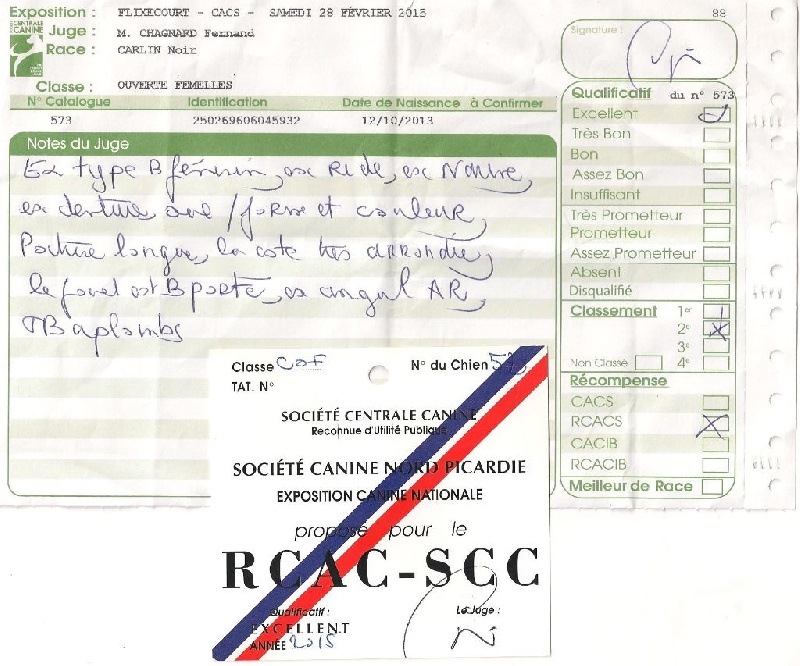 Exposition : FLIXECOURT - CACS - SAMEDI 28 FÉVRIER 2015
88
CENTRALE
CANINE
Juge : M. CHAGNARD Fernand
Race : CARLIN Noir
Classe : OUVERTE FEMELLES
N° Catalogue Identification Date de Naissance à Confirmer
573 250269606045932 12/10/2013
Notes du Juge
Ex type B féminin, ex Ride, ex Noire,
ex denture / forme et couleur,
Poitrine longue, la cote très arrondie,
le fouet est B porté, ex angul AR,
TB aplombs
Signature :
Qualificatif du n° 573
Excellent
Très Bon
Bon
Assez Bon
Insuffisant
Très Prometteur
Prometteur
Assez Prometteur
Absent
Disqualifié
Classement 1er
2e
3e
Non Classé 4e
Récompense
CACS
RCACS
CACIB
RCACIB
Meilleur de Race
Classe COF N° du Chien 573
TAT. N°
SOCIÉTÉ CENTRALE CANINE
Reconnue d'Utilité Publique
SOCIÉTÉ CANINE NORD PICARDIE
EXPOSITION CANINE NATIONALE
proposé pour le
RCAC-SCC
Qualificatif : Le Juge :
EXCELLENT
ANNÉE 2015